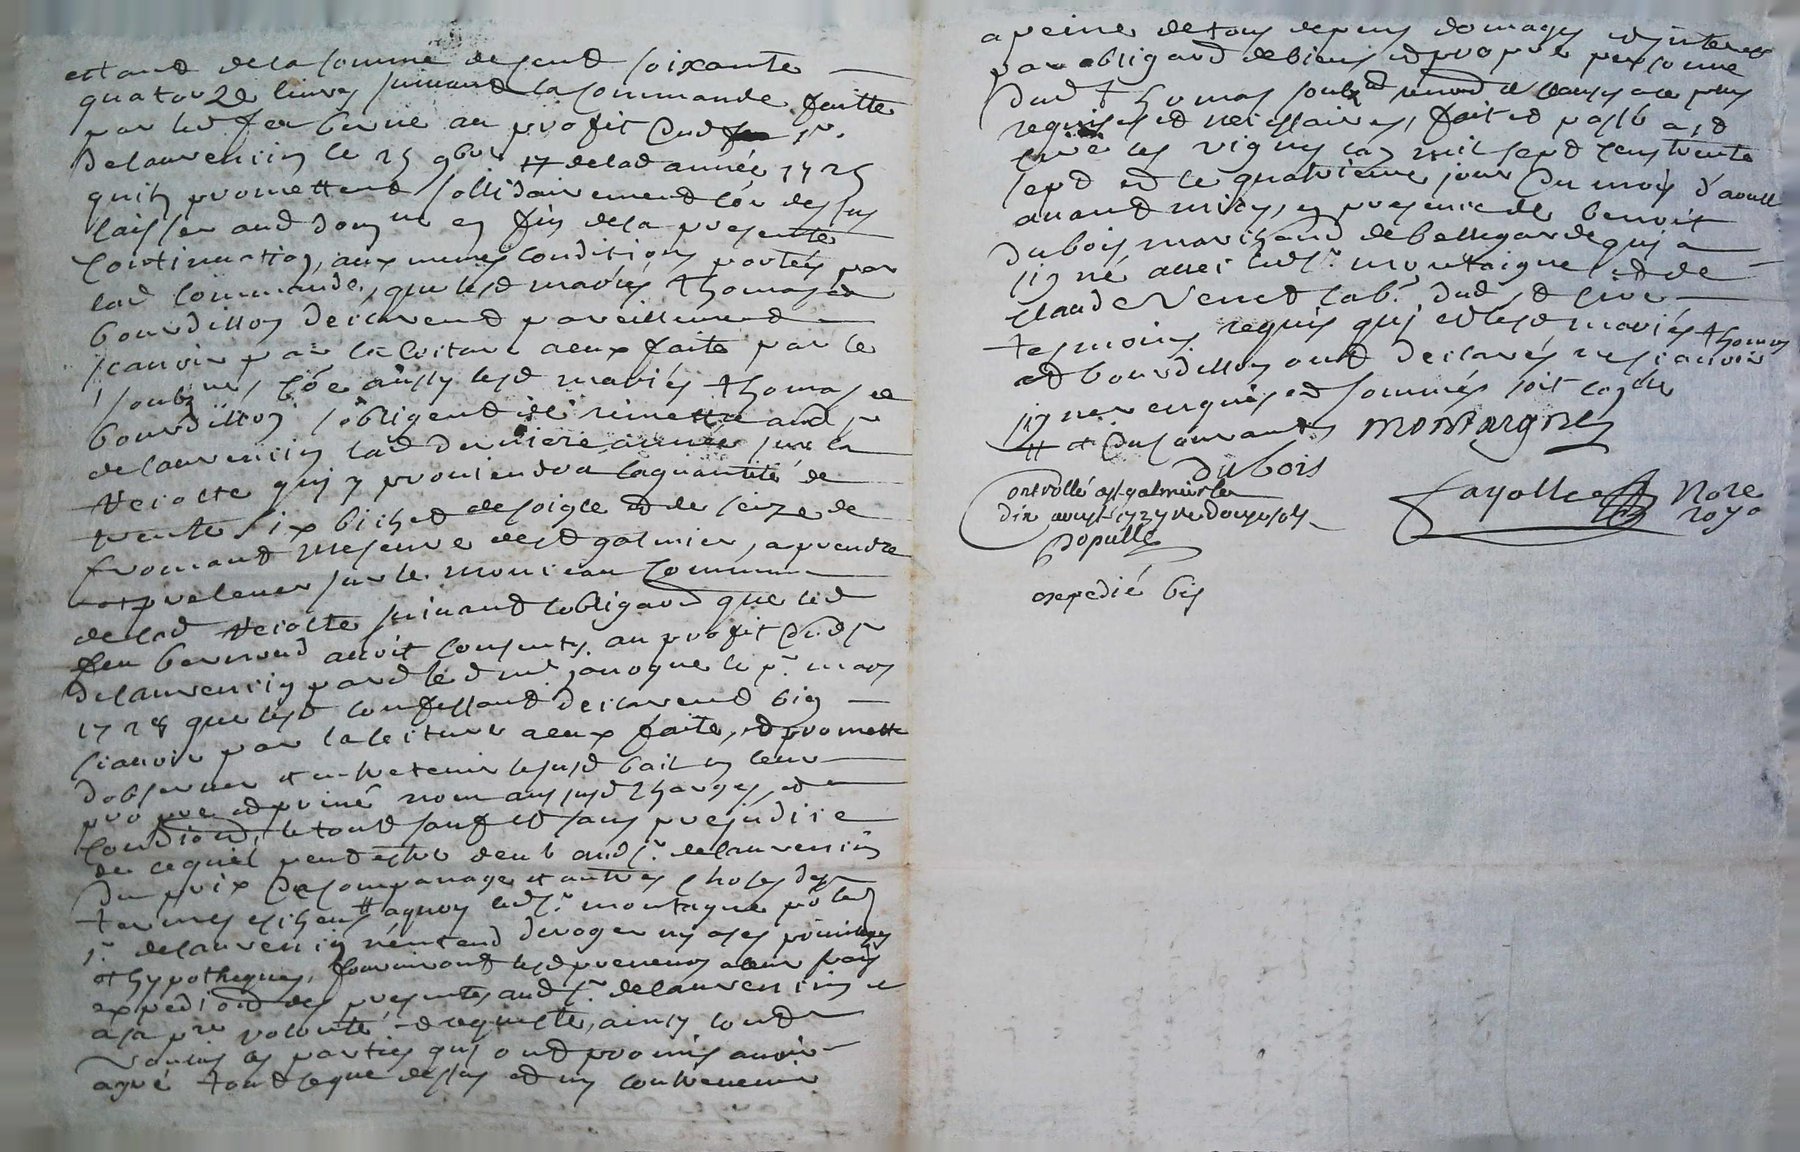 estant de la somme de cent soixante
quatorze livres suivant la commande faitte
par led feu berne au profit dud sr.
delaurencin le 25 9bre 17 de lad année 1725
quils promettent sollidairement co͞e dessus
laisser aud domne en fin de la presente
continuation, aux mêmes conditions portées par
lad commande, que lesd mariés thomas et
bourdillon declarent pareillement
scavoir par la lecture a eux faite par le
soubzne, co͞e aussy lesd mariés thomas et
bourdillon s'obligent de remettre aud sr
delaurencin lad derniere année sur la
recolte qui y proviendra la quantité de
trente six bichet de soigle et de seize de
fromant mesure de st galmier, a prendre
et prelever sur le monceau commun
de lad recolte suivant lobligaon que led
feu bernond avoit consenty au profit dud sr
delaurencin pard led me janogue le pr mars
1728 que lesd confessant declarent bien
scavoir par la lecture a eux faite, et promette
dobserver et entretenir lesusd bail en leur
propre et privé nom aus susd charges, et
condions, le tout sauf et sans prejudice
de cequil peut estre deub aud sr. delaurencin
du prix de compavage et autres choses des
termes escheus # aquoy led sr. montagne po led
sr. delaurencin n'entend deroger ny a ses privileges
et hypotheques, fourniront lesd preneurs a leur frais
expedion des presentes aud sr. delaurencin et
a sa pre volonté et requeste, ainsy lont
voulus les parties qui ont promis avoir
agreé tout ceque dessus et ny contrevenir
a peine de tous depens domages et interest
par obligaon de biens et propre personne
dud thomas soubz renond et clauses a ce plus
requises et necessaires, fait et passé a st
cire les vignes lan mil sept cens trente
sept et le quatrieme jour du mois d'aoust
avant midy, en presence de benoit
dubois marchand de bellegarde qui a
signé avec led sr. montaigne et de
claude Venet lab. dud st cire
tesmoins requis qui et lesd mariés thomas
et bourdillon ont declarés ne scavoir
signer enquis et sommés soit coné
# et du courant montaigne
dubois
Controllé a st galmier le
dix aoust 1737 re douze sols
populle
fayolle Nore
royo
expedié bis